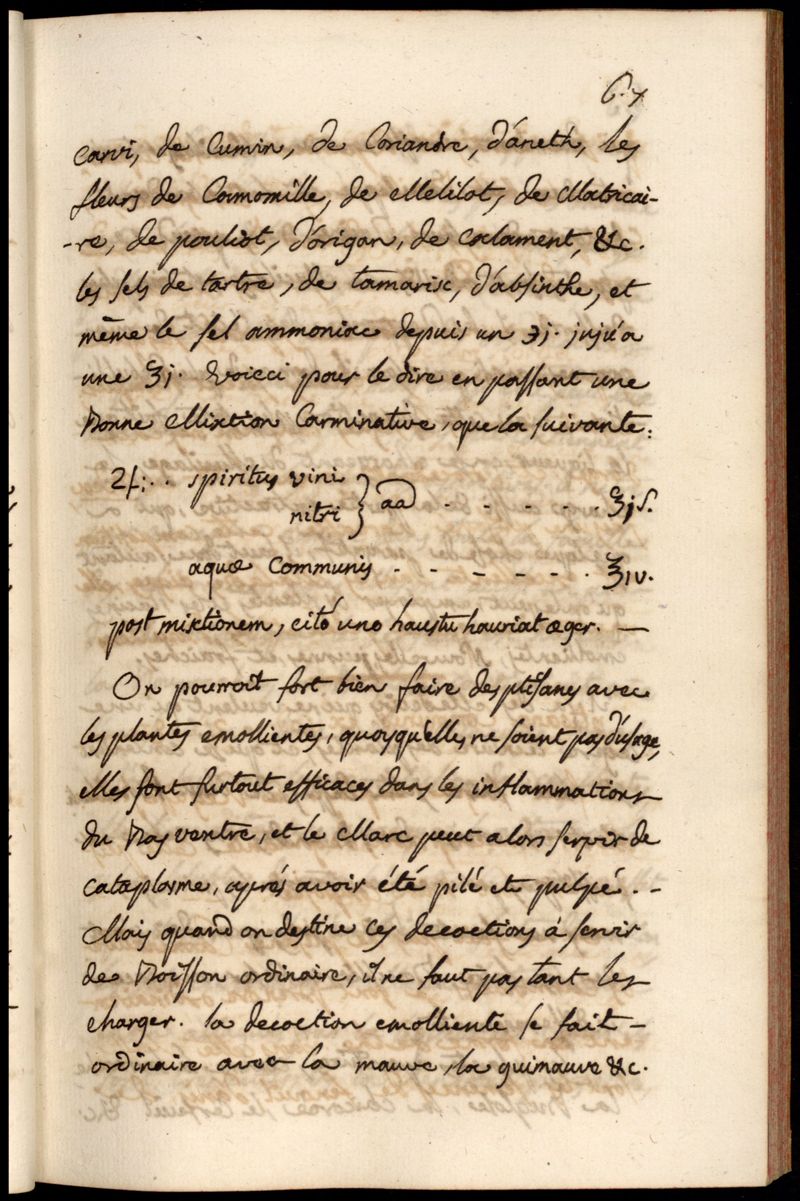 carvi, de Cumin, de Coriandre, d'áneth, les
fleurs de Camomille, de Melilot, de Matricai-
-re, de pouliot, d'órigan, de calament, &c.
les sels de tartre, de tamarisc, d'absinthe, et
même le sel ammoniac depuis un ℈j. jusju'a
une ʒj. Voicci pour le dire en passant une
Bonne Mixtion Carminative, que la suivante:
♃:.. spiritus vini
nitri } aa . . . . . . ʒjs.
aquæ Communis - - - - - . ℥iv.
post mixtionem, citó uno haustu hauriat æger. —
On pourroit fort bien faire des ptisanes avec
les plantes emollientes, quoyqu'elles ne soient pas d'usage,
elles sont surtout efficaces dans les inflammations
du Bas ventre, et le Marc peut alors servir de
cataplasme, aprés avoir été pilé et pulpé. -
Mais quand on destine ces decoctions á servir
de Boisson ordinaire, il ne faut pas tant les
charger. la decoction emolliente se fait -
ordinaire avec la mauve, la guimauve &c.